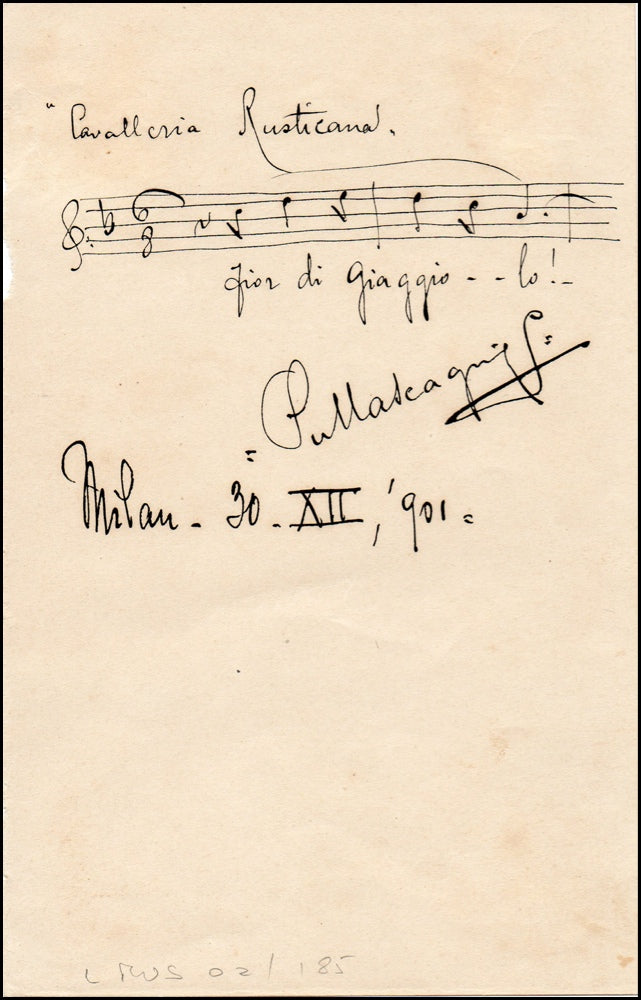 "Cavalleria Rusticana".
6
8
Fior di giaggio - - lo! -
= P Mascagni =
Milan - 30 - XII, '901 =
L MUS 02 / 185